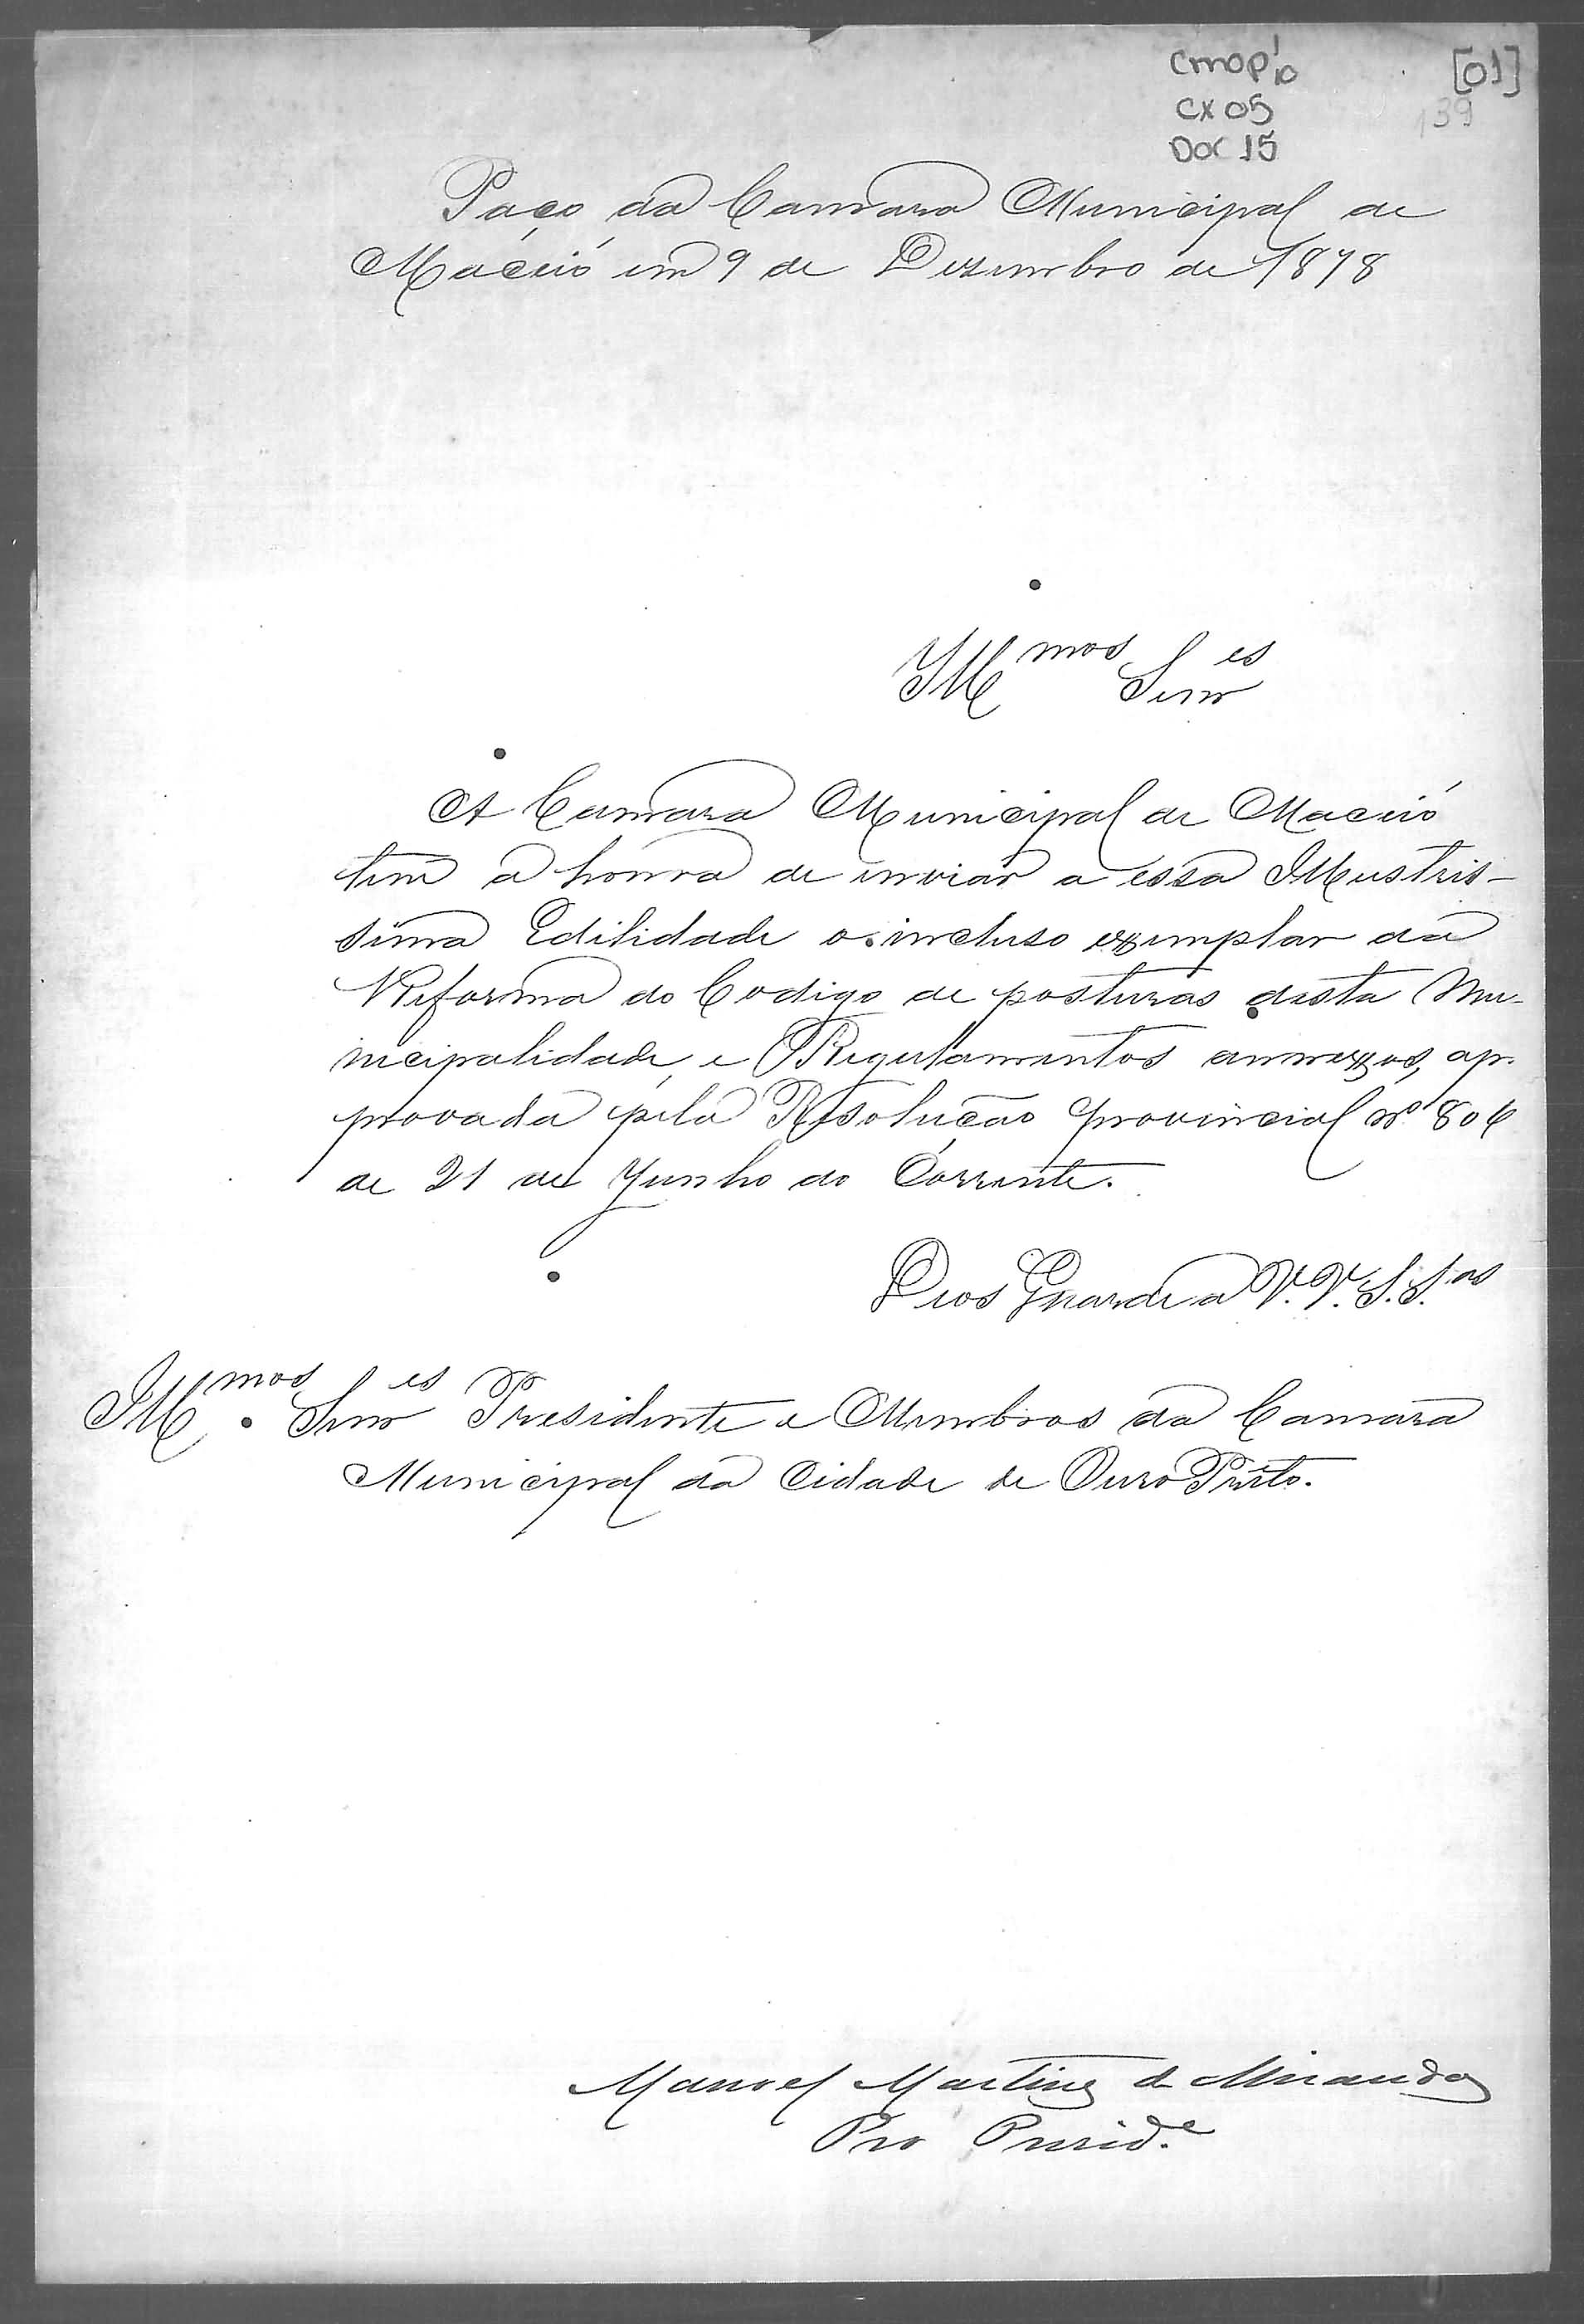 CMOP 10
[01]
CX 05
139
DOC 15
Paço da Camara Municipal de
Maceió em 9 de Dezembro de 1878
Ill mos Senr es
A Camara Municipal de Maceió
tem a honra de enviar a essa Illustris-
sima Edilidade o incluso exemplar da
Reforma do Codigo de posturas desta Mu-
nicipalidade, e Regulamentos annexos, ap-
provada pela Resolução provincial nº 806
de 21 de Junho do Corrente.
Deos Guarde a V.V. S.S.as
Ill mos Senr es Presidente e Membros da Camara
Municipal da Cidade de Ouro Preto.
Manoel Martins de Miranda
Pro Presid.e